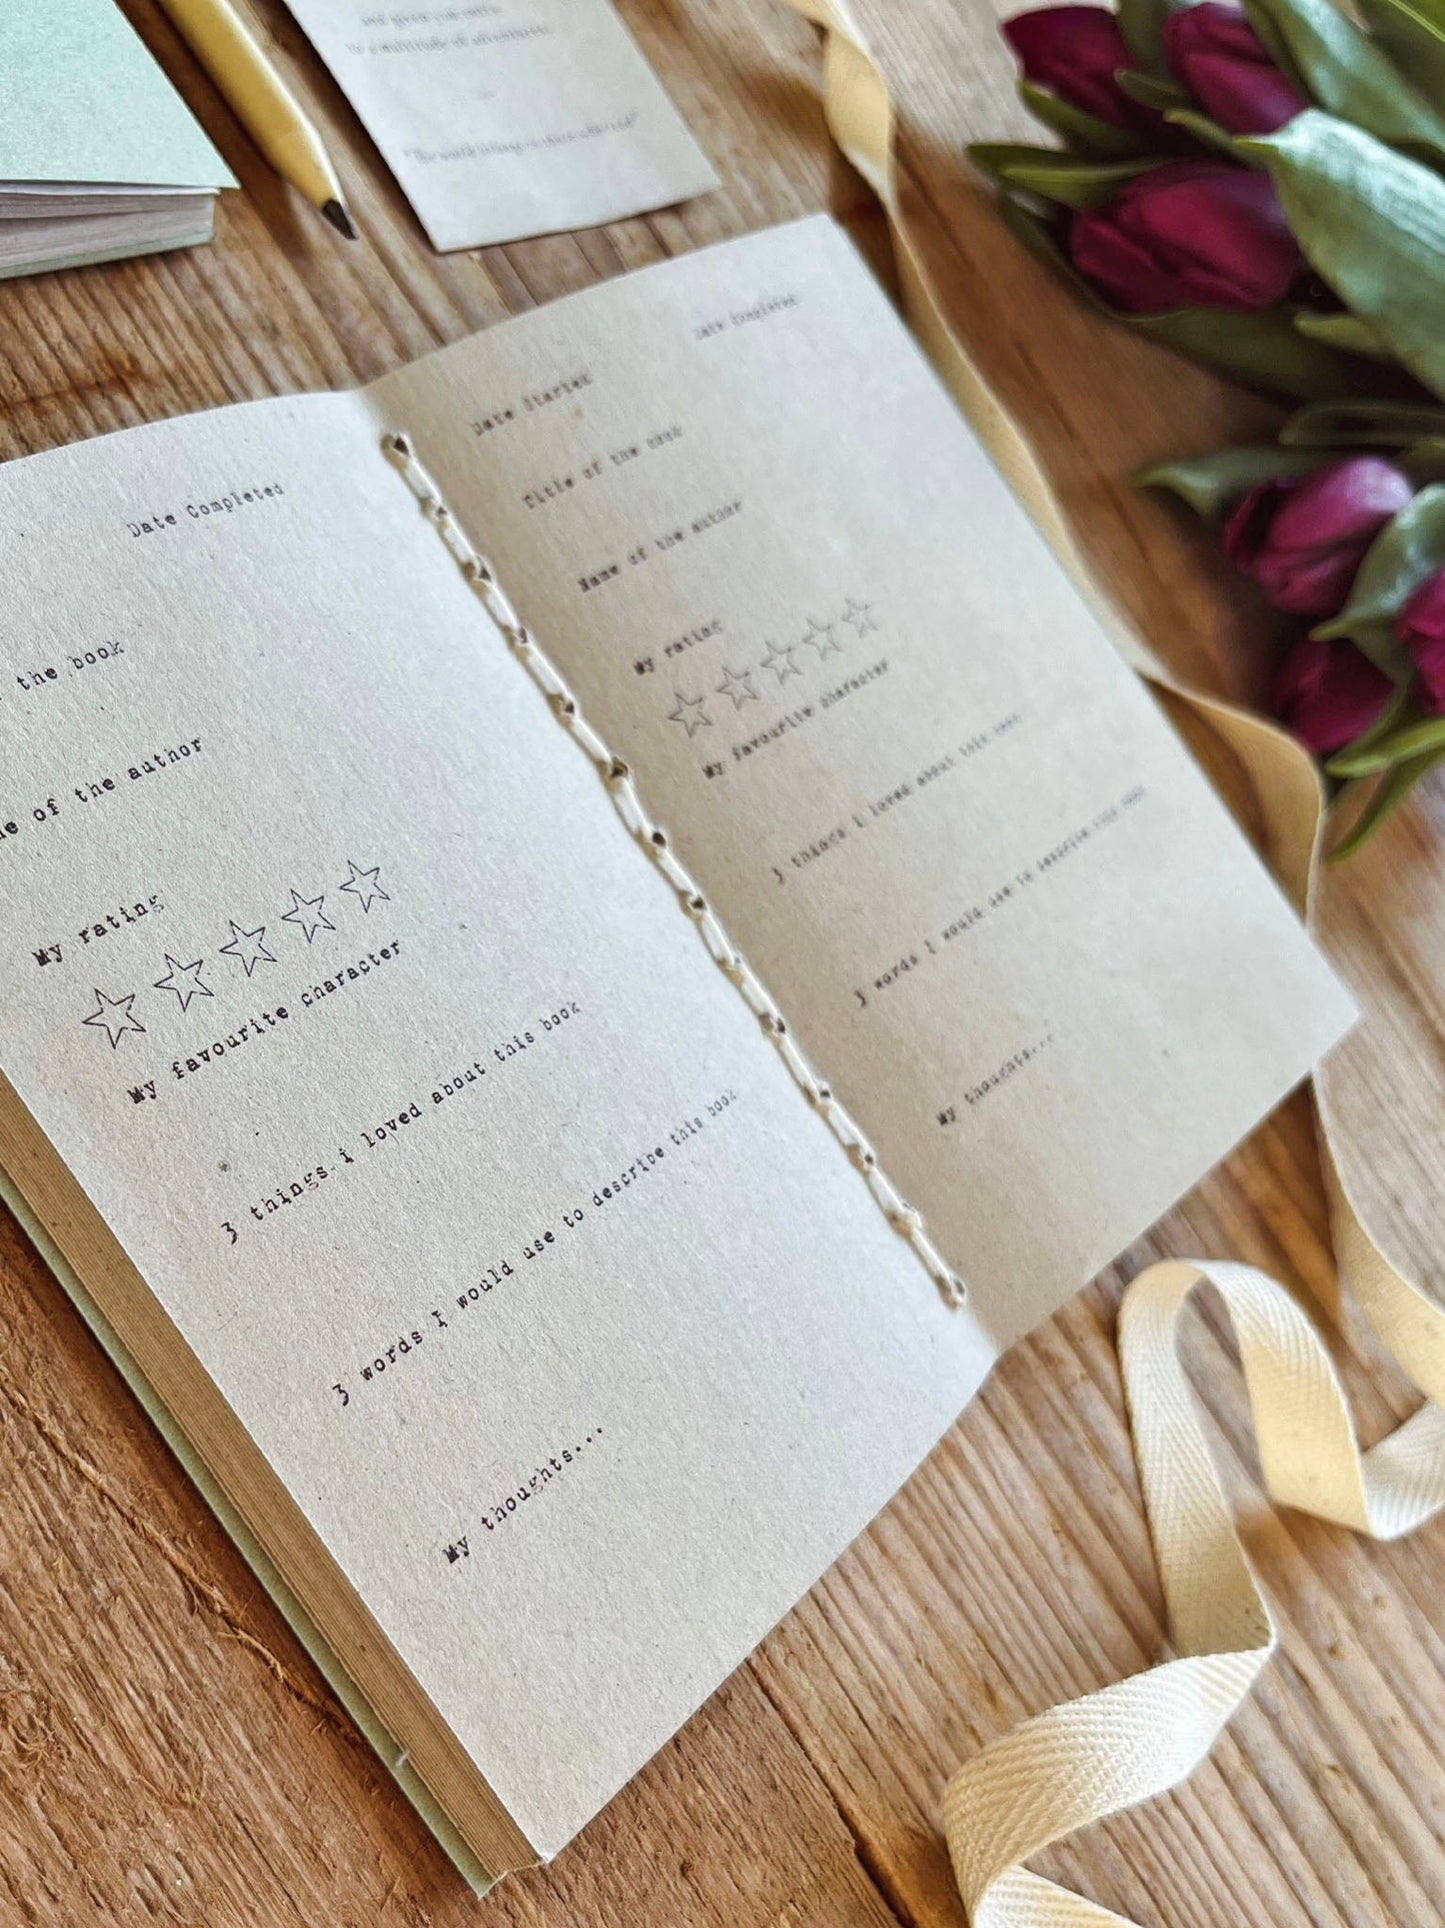 to a multitude of adventures.
Date Completed
the book
of the author
My rating
My favourite character
3 things i loved about this book
3 words I would use to describe this book
My thoughts...
Date Started
Date Completed
Title of the book
Name of the author
My rating
My favourite character
3 things i loved about this book
3 words I would use to describe this book
My thoughts...